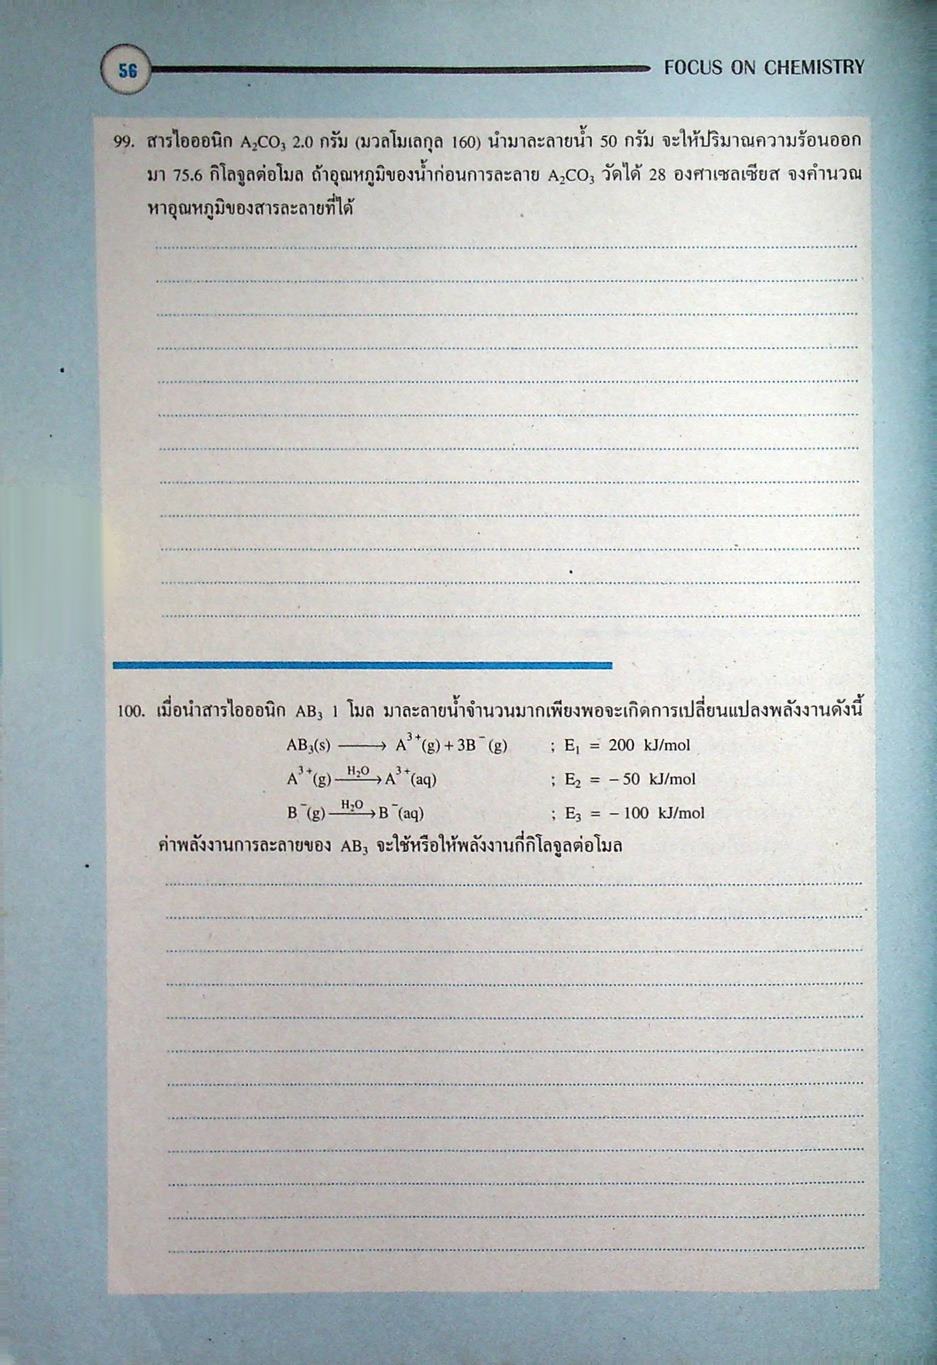 56
FOCUS ON CHEMISTRY
99. สารไอออนิก A₂CO₃ 2.0 กรัม (มวลโมเลกุล 160) นำมาละลายน้ำ 50 กรัม จะให้ปริมาณความร้อนออก
มา 75.6 กิโลจูลต่อโมล ถ้าอุณหภูมิของน้ำก่อนการละลาย A₂CO₃ วัดได้ 28 องศาเซลเซียส จงคำนวณ
หาอุณหภูมิของสารละลายที่ได้
100. เมื่อนำสารไอออนิก AB₃ 1 โมล มาละลายน้ำจำนวนมากเพียงพอจะเกิดการเปลี่ยนแปลงพลังงานดังนี้
AB₃(s) ⟶ A³⁺(g) + 3B⁻(g) ; E₁ = 200 kJ/mol
A³⁺(g) —H₂O→ A³⁺(aq) ; E₂ = − 50 kJ/mol
B⁻(g) —H₂O→ B⁻(aq) ; E₃ = − 100 kJ/mol
ค่าพลังงานการละลายของ AB₃ จะใช้หรือให้พลังงานกี่กิโลจูลต่อโมล